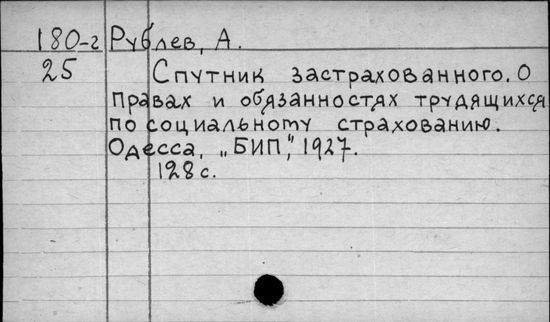 180-г Рублев, А.
25 Спутник застрахованного. О
правах и обязанностях трудящихся
по социальному страхованию.
Одесса, „БИП", 1927.
128 с.